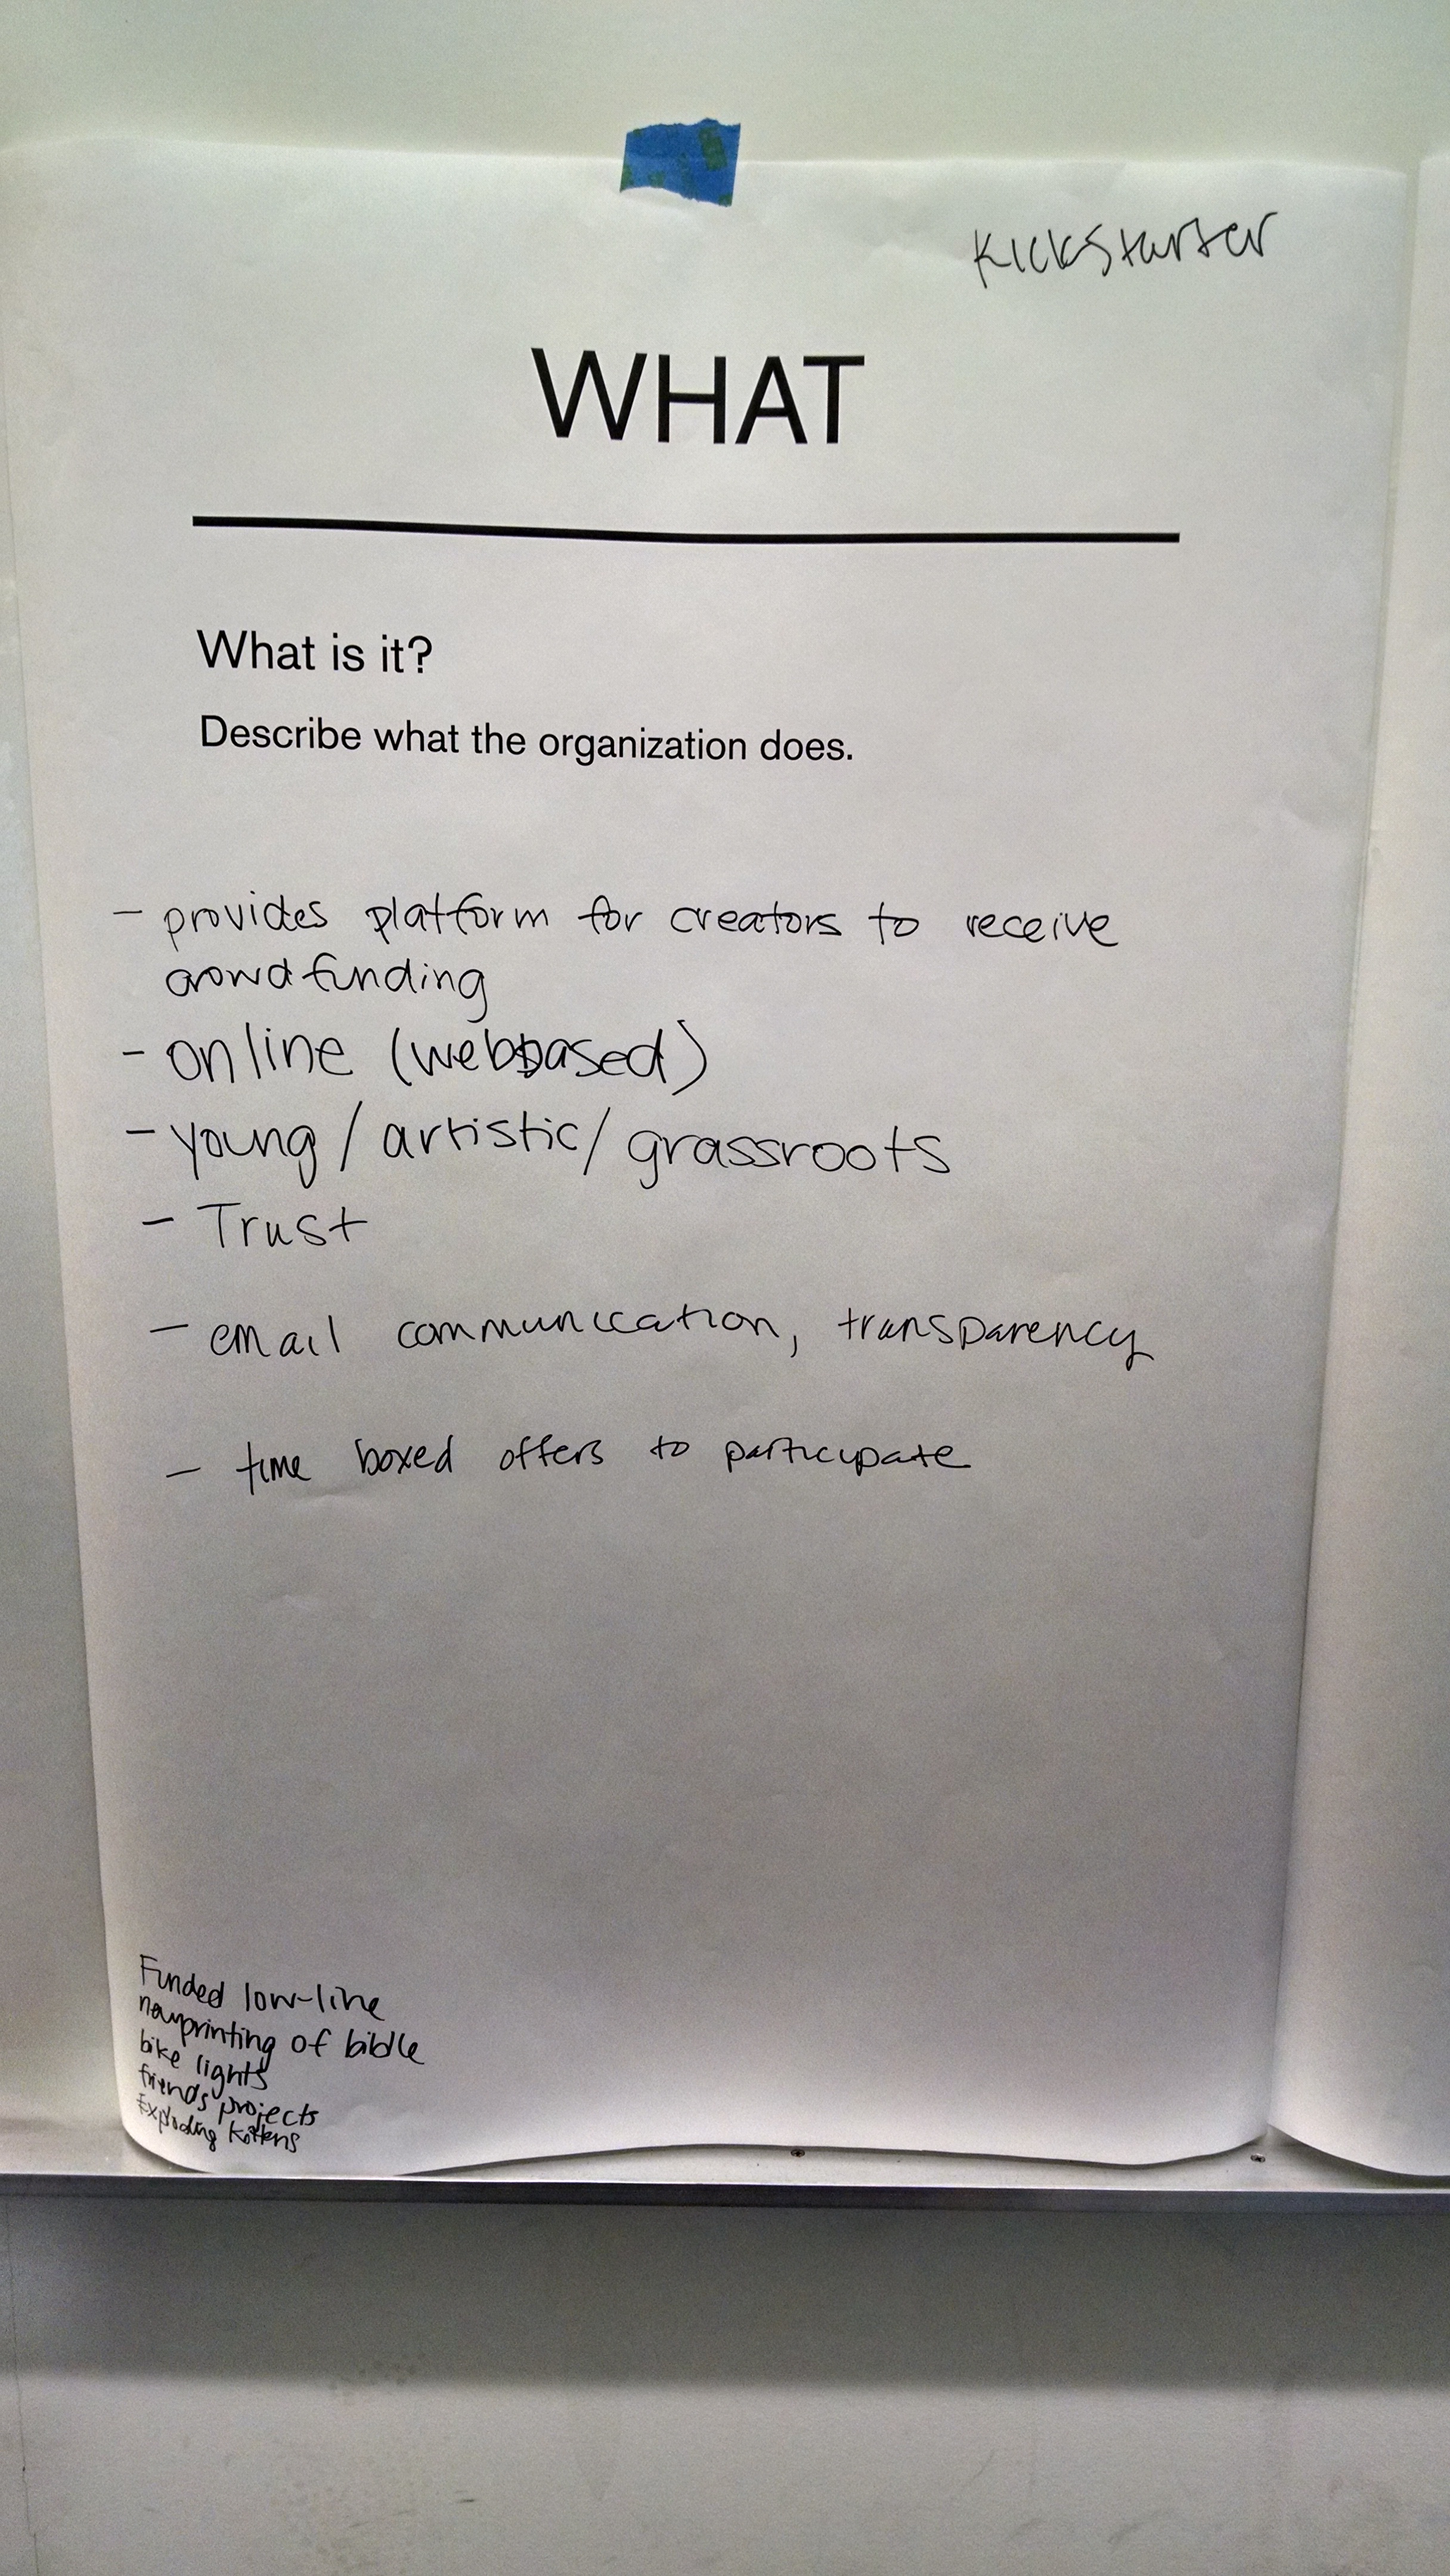 Kickstarter
WHAT
What is it?
Describe what the organization does.
- provides platform for creators to receive
crowdfunding
- online (webbased)
- young / artistic / grassroots
- Trust
- email communication, transparency
- time boxed offers to participate
Funded low-line
printing of bible
bike lights
friends projects
Exploding Kittens